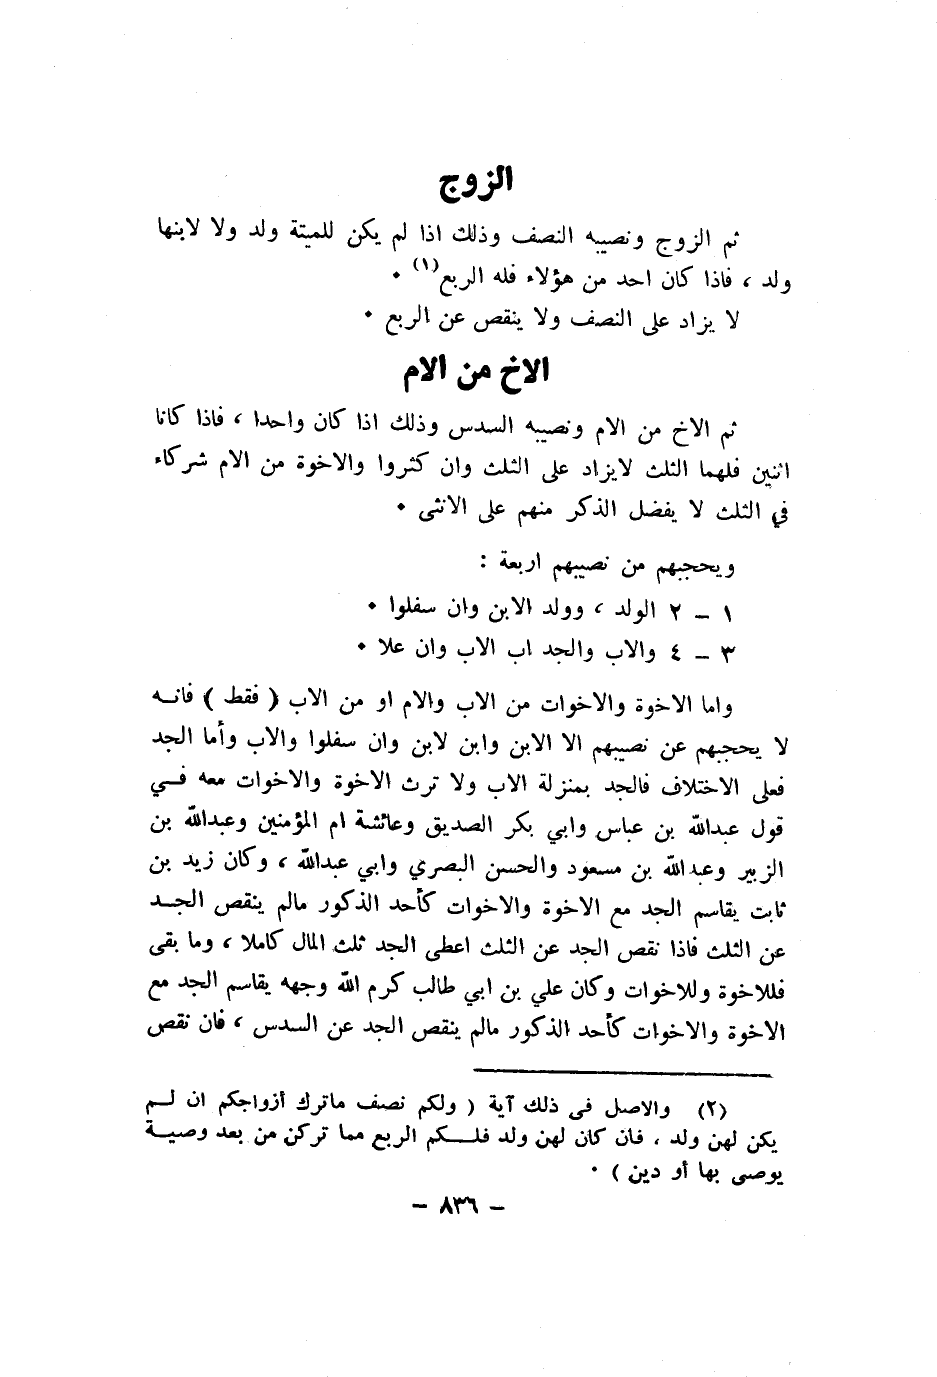 الزوج
ثم الزوج ونصيبه النصف وذلك اذا لم يكن للميتة ولد ولا لابنها
ولد ، فاذا كان احد من هؤلاء فله الربع(١) .
لا يزاد على النصف ولا ينقص عن الربع .
الاخ من الام
ثم الاخ من الام ونصيبه السدس وذلك اذا كان واحدا ، فاذا كانا
اثنين فلهما الثلث لايزاد على الثلث وان كثروا والاخوة من الام شركاء
في الثلث لا يفضل الذكر منهم على الانثى .
ويحجبهم من نصيبهم اربعة :
١ – ٢ الولد ، وولد الابن وان سفلوا .
٣ – ٤ والاب والجد اب الاب وان علا .
واما الاخوة والاخوات من الاب والام او من الاب ( فقط ) فانـه
لا يحجبهم عن نصيبهم الا الابن وابن لابن وان سفلوا والاب وأما الجد
فعلى الاختلاف فالجد بمنزلة الاب ولا ترث الاخوة والاخوات معه فـي
قول عبدالله بن عباس وابي بكر الصديق وعائشة ام المؤمنين وعبدالله بن
الزبير وعبدالله بن مسعود والحسن البصري وابي عبدالله ، وكان زيد بن
ثابت يقاسم الجد مع الاخوة والاخوات كأحد الذكور مالم ينقص الجـد
عن الثلث فاذا نقص الجد عن الثلث اعطى الجد ثلث المال كاملا ، وما بقى
فللاخوة وللاخوات وكان علي بن ابي طالب كرم الله وجهه يقاسم الجد مع
الاخوة والاخوات كأحد الذكور مالم ينقص الجد عن السدس ، فان نقص
(٢) والاصل فى ذلك آية ( ولكم نصف ماترك أزواجكم ان لـم
يكن لهن ولد ، فان كان لهن ولد فلـكم الربع مما تركن من بعد وصيـة
يوصى بها أو دين ) .
– ٨٣٦ –